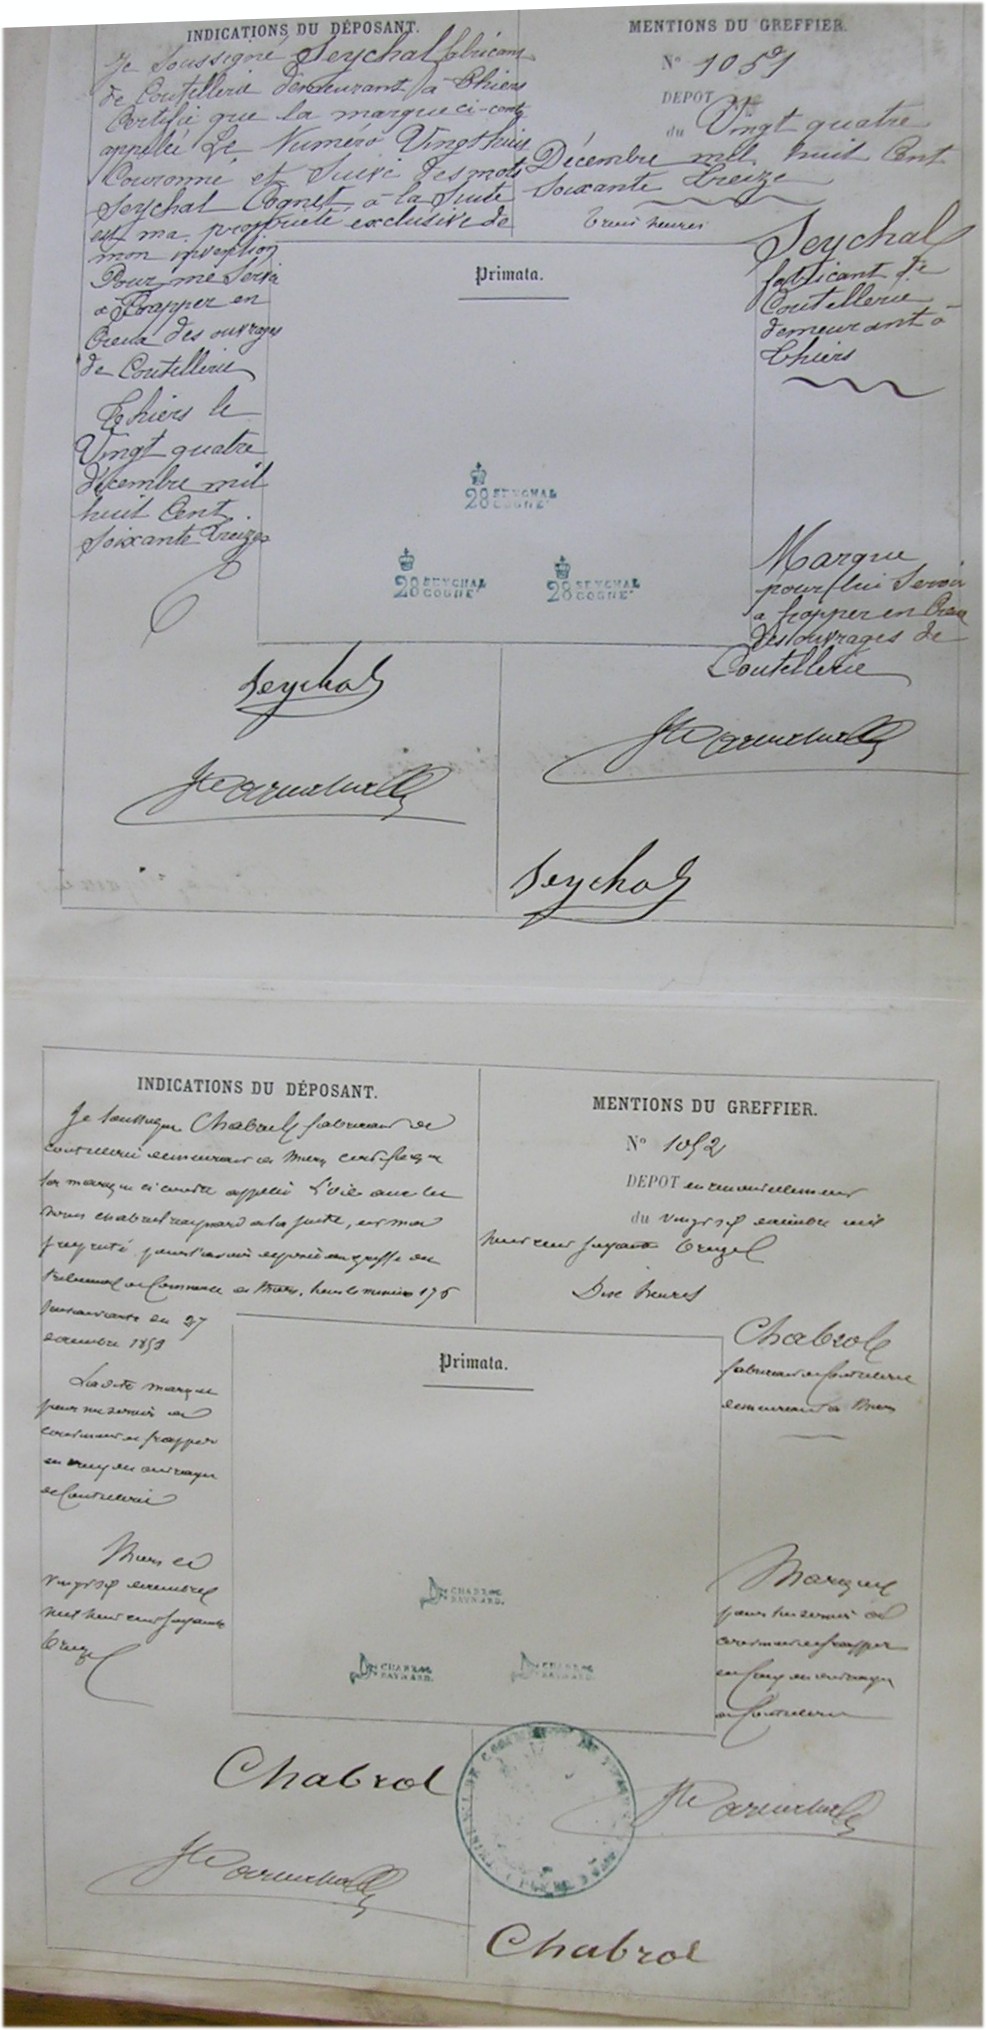 INDICATIONS DU DÉPOSANT.
Je Soussigné Seychal fabricant
de Coutellerie demeurant à Thiers
Certifie que la marque ci-contre
appelée Le Numéro Vingt huit
Couronné et Suivi des mots
Seychal Cognet à la Suite
est ma propriété exclusive de
mon invention
Pour me Servir
a frapper en
Creux des ouvrages
de Coutellerie
Thiers le
Vingt quatre
décembre mil
huit Cent
Soixante treize
MENTIONS DU GREFFIER.
N° 1051
DEPOT
du Vingt quatre
Décembre mil huit Cent
Soixante treize
trois heures
Seychal
fabricant de
Coutellerie
demeurant à
Thiers
Primata.
28 SEYCHAL
COGNET
28 SEYCHAL
COGNET
28 SEYCHAL
COGNET
Marque
pour lui Servir
a frapper en Creux
des ouvrages de
Coutellerie
Seychal
Seychal
INDICATIONS DU DÉPOSANT.
Je soussigné Chabrol fabricant de
coutellerie demeurant à Thiers certifie que
la marque ci contre appelée L'oie avec les
noms chabrol raynard a la suite, est ma
propriété pour l'avoir déposée au greffe du
tribunal de Commerce de Thiers, sous le numéro 176
décembre 1859
Ladite marque
pour me servir
frapper
en creux des ouvrages
de Coutellerie
Thiers le
vingt six décembre
mil huit cent soixante
treize
MENTIONS DU GREFFIER.
N° 1052
DEPOT en renouvellement
du vingt six décembre mil
huit cent soixante treize
Dix heures
Chabrol
fabricant de Coutellerie
demeurant à Thiers
Primata.
CHABROL
RAYNARD.
CHABROL
RAYNARD.
CHABROL
RAYNARD.
Marque
pour lui servir
frapper
en creux des ouvrages
de Coutellerie
Chabrol
TRIBUNAL DE COMMERCE DE THIERS
Chabrol